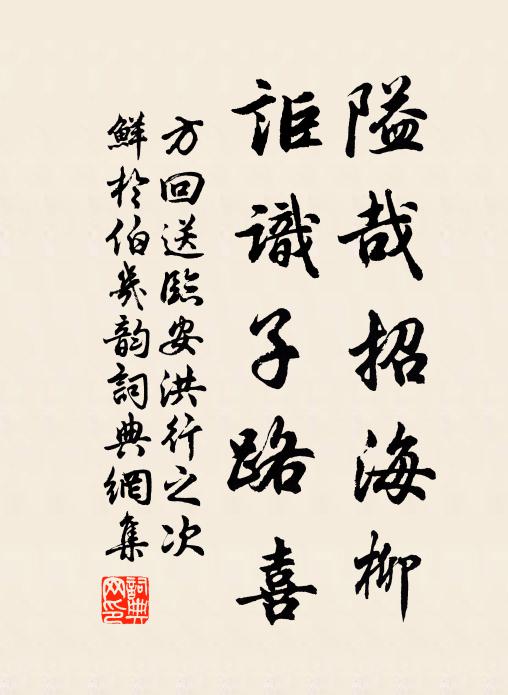 隘哉招海柳
詎識子路喜
方回送臨安洪行之次
鮮於伯幾韵詞典網集
詞典網印